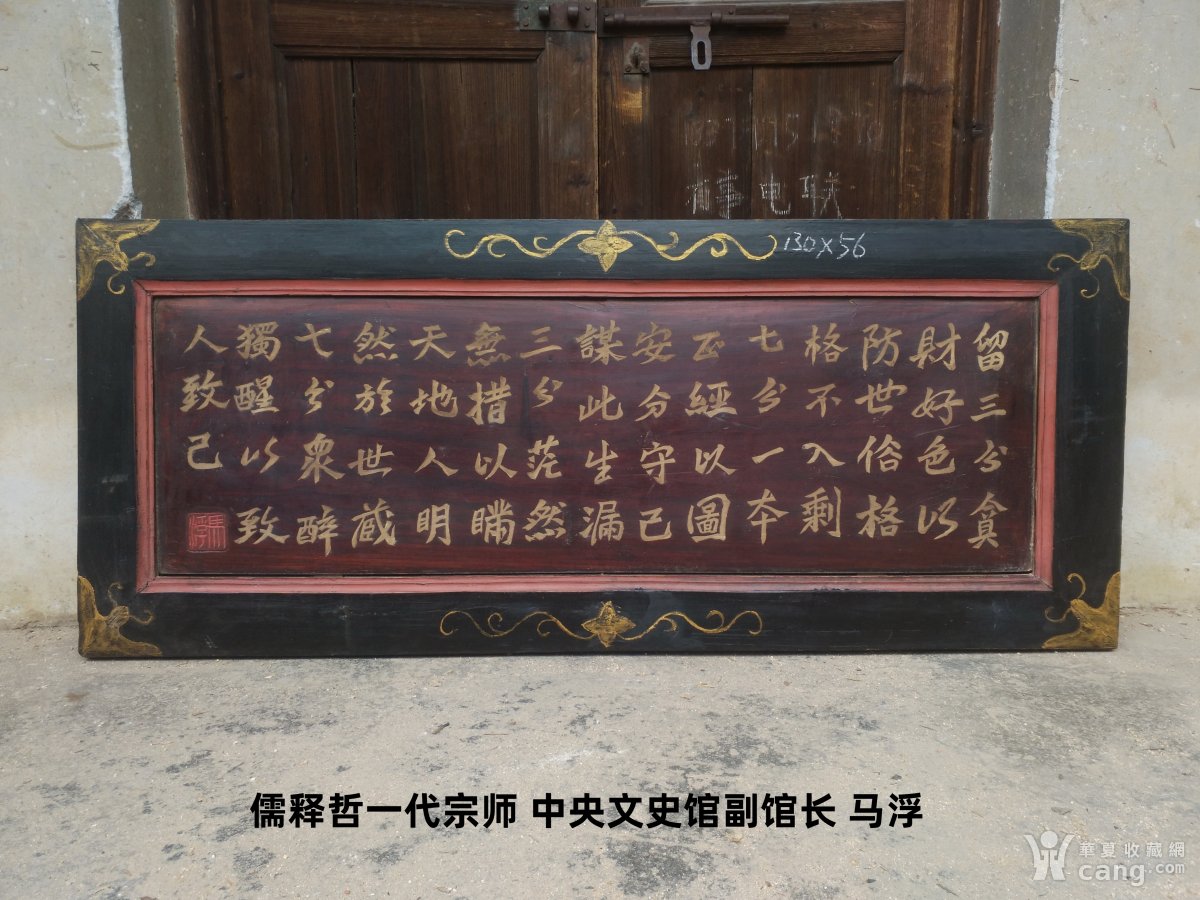 有事电联
130X56
留三分貪
財好色以
防世俗格
格不入剩
七分一本
正經以圖
安分守己
謀此生漏
三分茫然
無措以瞞
天地人明
然於世藏
七分眾醉
獨醒以致
人致己
馬浮
儒释哲一代宗师 中央文史馆副馆长 马浮
華夏收藏網
cang.com